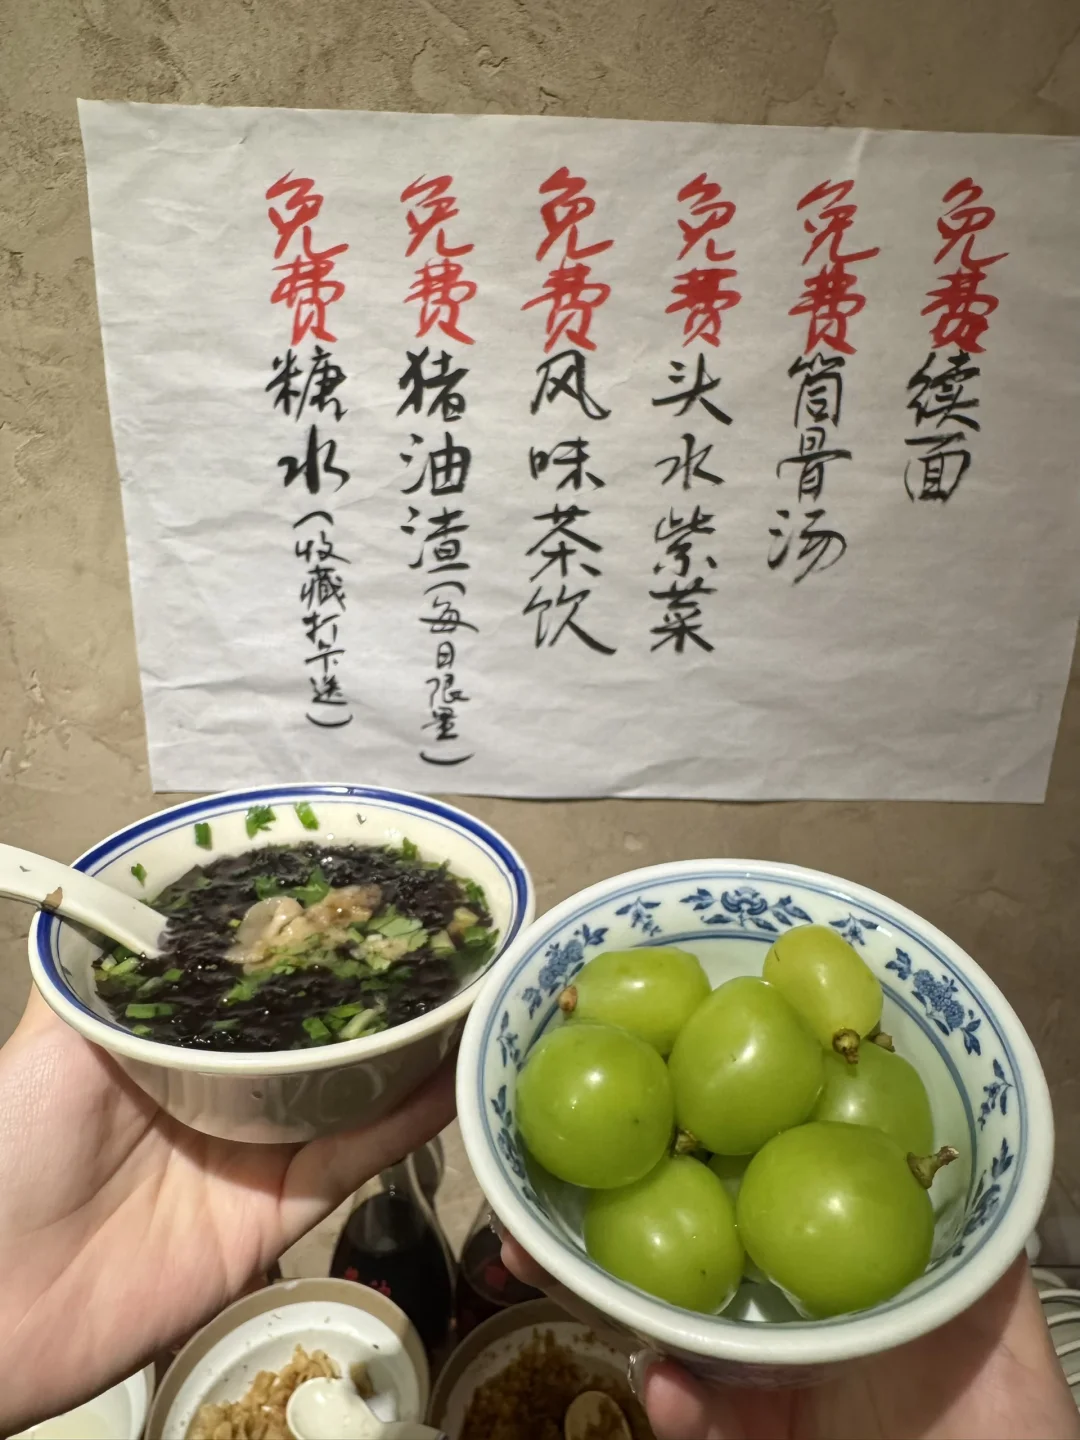 免费续面
免费筒骨汤
免费头水紫菜
免费风味茶饮
免费猪油渣(每日限量)
免费糖水(收藏打卡送)